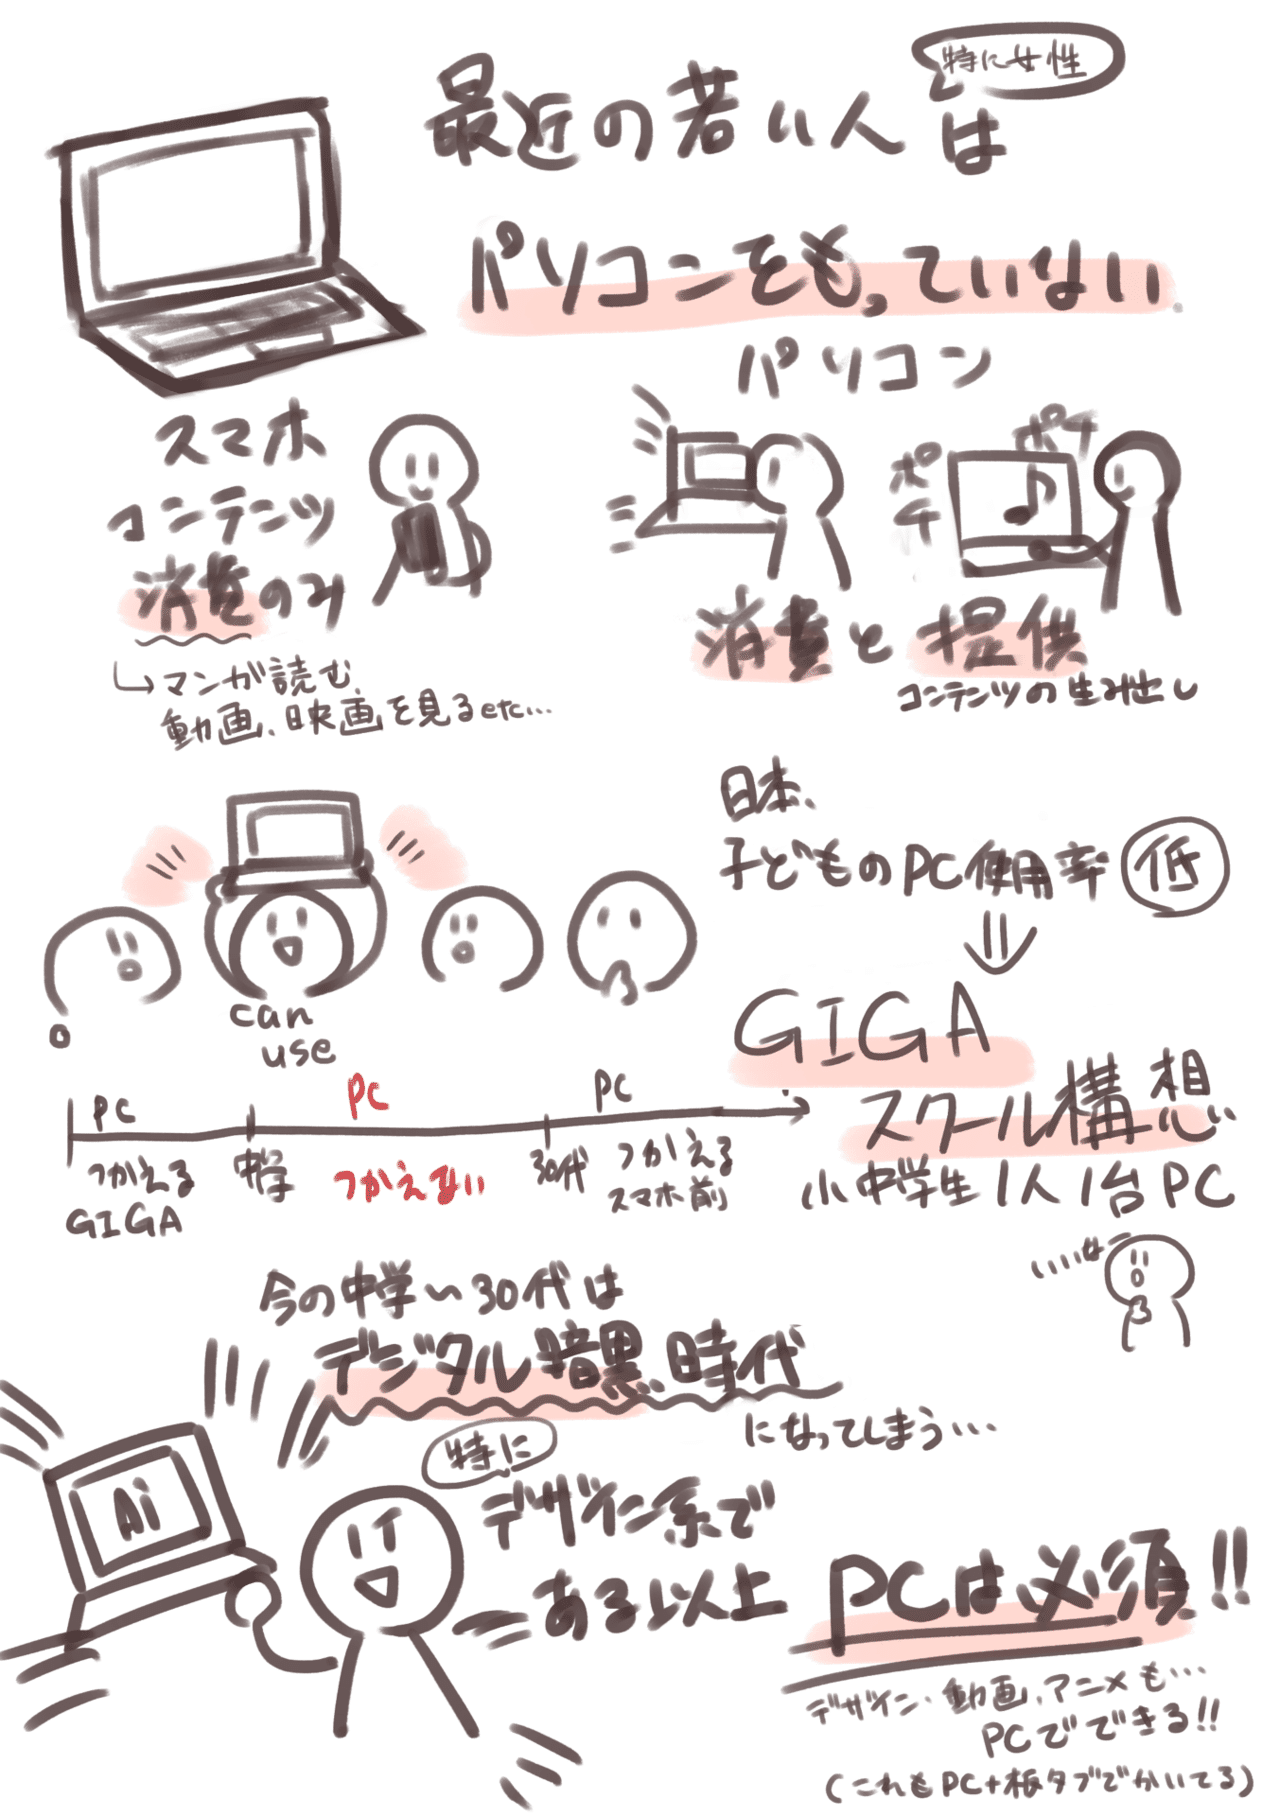 特に女性
最近の若い人は
パソコンをもっていない
スマホ
コンテンツ
消費のみ
↳マンガ読む、
動画、映画を見るetc...
パソコン
ポチ
ポチ
消費と提供
コンテンツの生み出し
日本、
子どものPC使用率 低
⇓
GIGA
スクール構想
小中学生1人1台PC
いいなー
can
use
0
PC
PC
PC
つかえる
中学
つかえない
30代
つかえる
GIGA
スマホ前
今の中学〜30代は
デジタル暗黒時代
になってしまう...
Ai
特に
デザイン系で
ある以上
PCは必須!!
デザイン、動画、アニメも...
PCでできる!!
(これもPC+板タブでかいてる)